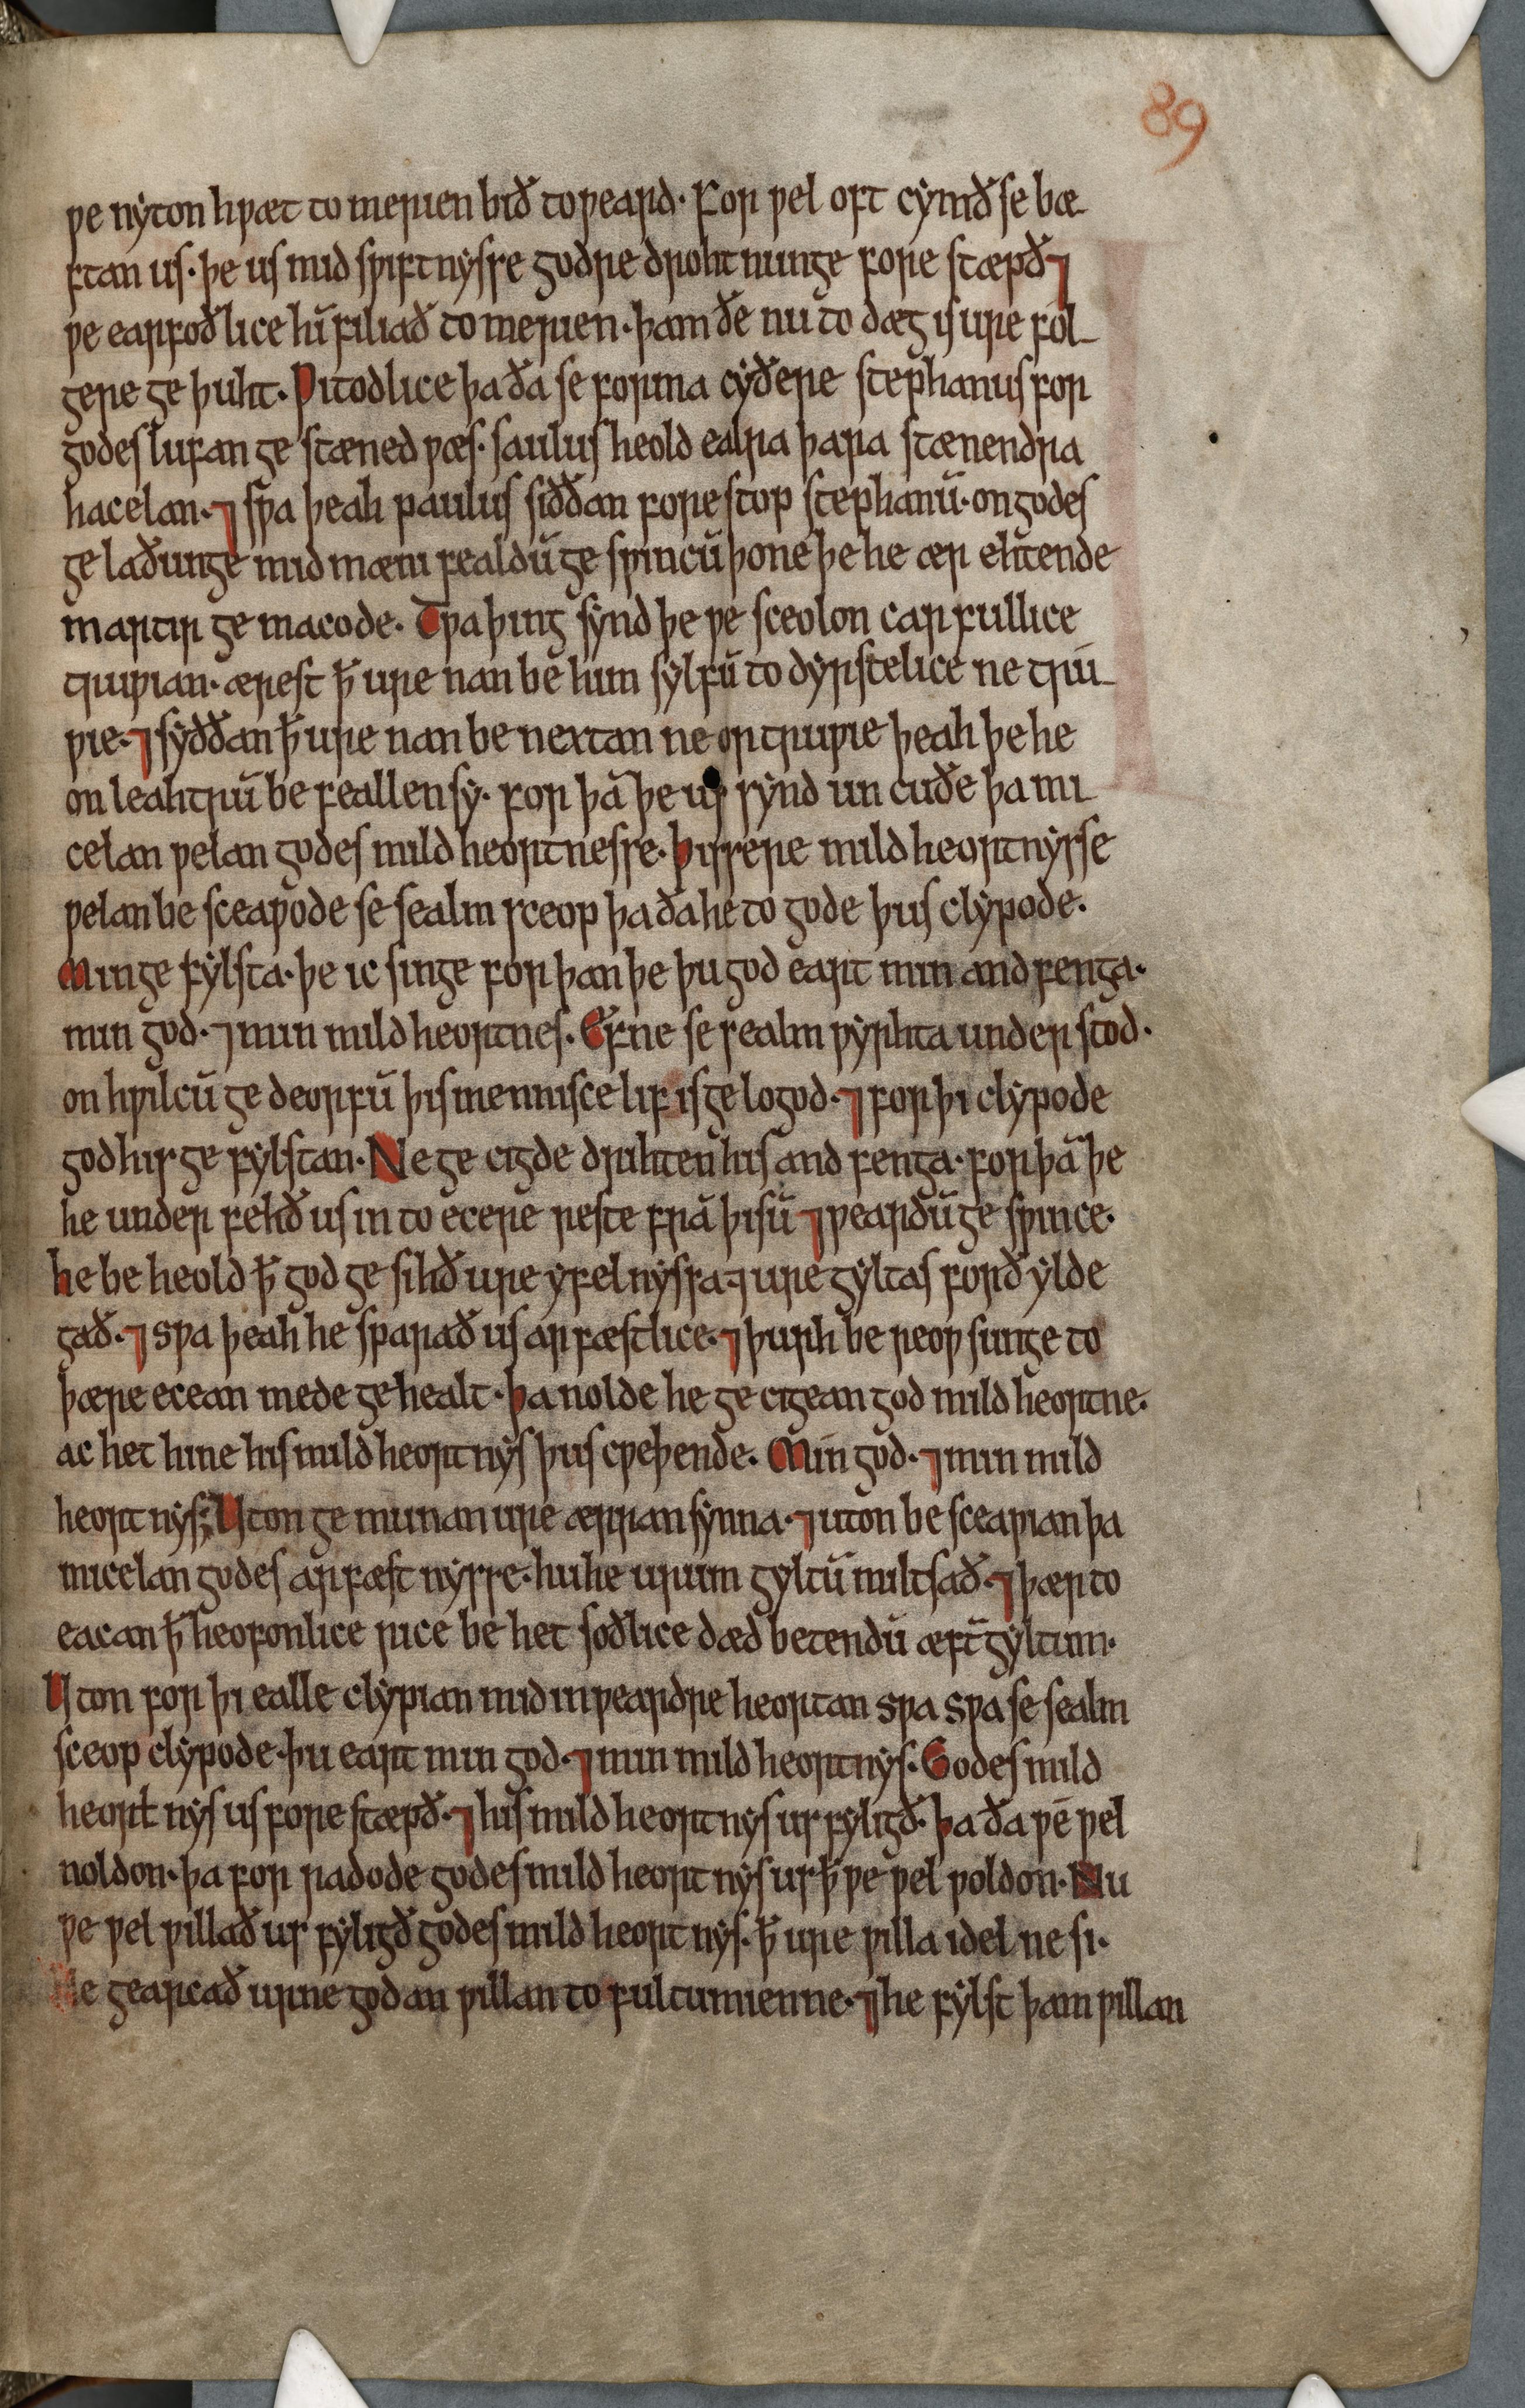 89
ƿe nẏton hƿæt to merıen bıð toƿeard· For ƿel oft cẏmð se bæ
ftan us· þe us mıd sƿıftnẏsse godre drohtnunge fore stæpð ⁊
ƿe earfoðlıce hı̄ fılıað to merıen· þam ðe nu to dæg ıs ure fol-
gere ge þuht· Ƿıtodlıce þa ða se forma cẏðere stephanus for
godes lufan ge stæned ƿæs· saulus heold ealra þara stænendra
hacelan· ⁊ sƿa þeah paulus sıððan fore stop stephanū· on godes
ge laðunge mıd mænı fealdū ge sƿıncū þone þe he ær ehtende
martır ge macode· Tƿa þıng sẏnd þe ƿe sceolon carfullıce
truƿıan· ærest ꝥ ure nan be hım sẏlfū to dẏrstelıce ne tru-
ƿıe· ⁊ sẏððan ꝥ ure nan be nextan ne ortruƿıe þeah þe he
on leahtrū be feallen sẏ· for þā þe us sẏnd un cuðe þa mı-
celan ƿelan godes mıld heortnesse· Þıssere mıldheortnẏsse
ƿelan be sceaƿode se sealm sceop þa ða he to gode þus clẏpode·
Mın ge fẏlsta· þe ıc sınge for þan þe þu god eart mın and fenga·
mın god· ⁊ mın mıld heortnes· Efne se sealm ƿẏrhta under stod·
on hƿılcū ge deorfū þıs mennısce lıf ıs ge logod· ⁊ for þı clẏpode
god hıs ge fẏlstan· Ne ge cıgde drıhten hıs and fenga· for þā þe
he under fehð us ın to ecere reste frā þısū ⁊ƿeardū ge sƿınce·
he be heold ꝥ god ge sıhð ure ẏfelnẏssa· ⁊ ure gẏltas forð ẏlde
gað· ⁊ sƿa þeah he sparað us arfæstlıce· ⁊ þurh be reoƿsunge to
þære ecean mede ge healt· þa nolde he ge cıgean god mıld heortne·
ac het hıne hıs mıld heortnẏs þus cƿeþende· Mın god· ⁊ mın mıld
heort nẏs; Uton ge munan ure ærran sẏnna· ⁊ uton be sceaƿıan þa
mıcelan godes arfæst nẏsse· hu he urum gẏltū mıltsað· ⁊ þær to
eacan ꝥ heofonlıce rıce be het soðlıce dæd betendū æft̄ gẏltum·
Uton for þı ealle clẏpıan mıd ınƿeardre heortan sƿa sƿa se sealm
sceop clẏpode· þu eart mın god· ⁊ mın mıld heortnẏs· Godes mıld
heort nẏs us fore stæpð· ⁊ hıs mıld heortnẏs us fẏlıgð· þa ða ƿe ƿel
noldon· þa for radode godes mıld heort nẏs us ꝥ ƿe ƿel ƿoldon· Nu
ƿe ƿel ƿıllað us fẏlıgð godes mıld heort nẏs· ꝥ ure ƿılla ıdel ne sı·
He gearcað urne godan ƿıllan to fultumıenne· ⁊ he fẏlst þam ƿıllan